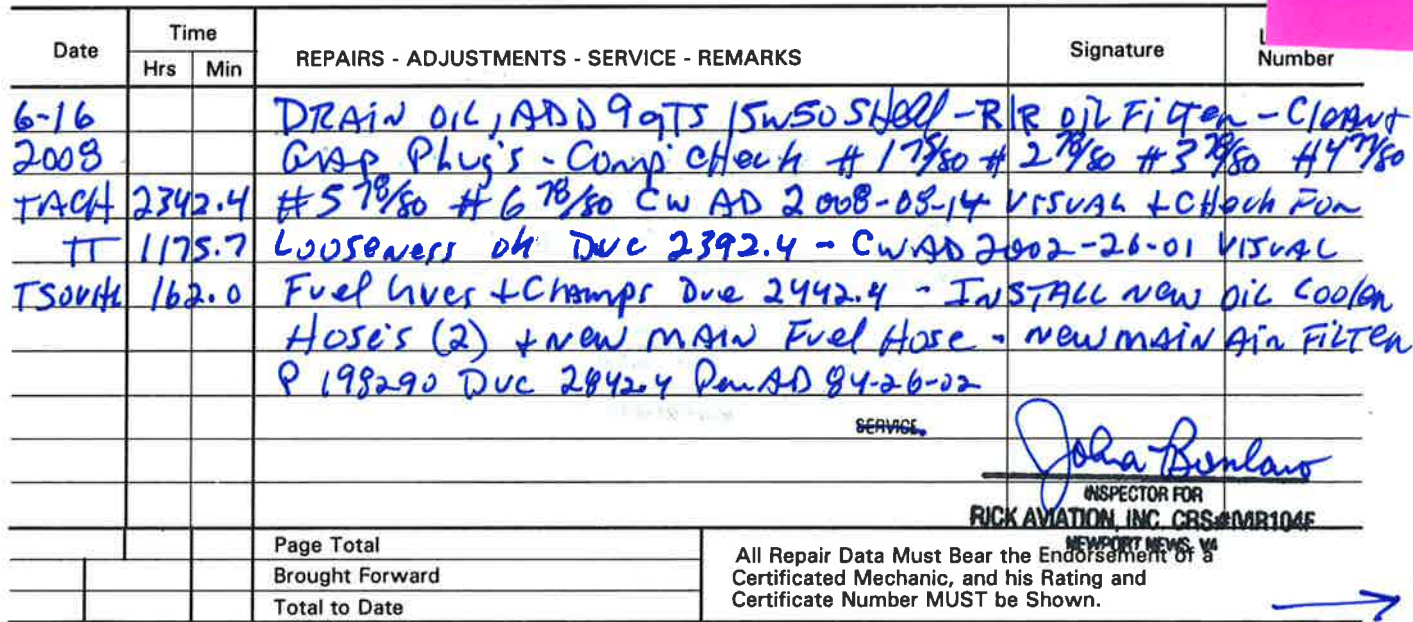 Date Time Hrs Min REPAIRS - ADJUSTMENTS - SERVICE - REMARKS Signature Number
6-16 DRAIN OIL, ADD 9 qTS 15W50 SHell - R/R OIL FiLTer - CleAn +
2008 GAP Plug's - Comp CHeck # 1 78/80 # 2 78/80 # 3 78/80 #4 77/80
TACH 2342.4 #5 78/80 # 6 78/80 CW AD 2008-08-14 VISUAL + CHeck For
TT 1175.7 LOOSeNess ok Due 2392.4 - CW AD 2002-26-01 VISUAL
162.0 Fuel lines + Clamps Due 2442.4 - INSTALL New OIL COOler
Hose's (2) + New MAIN Fuel Hose - New MAIN Air FiLTer
P 198290 Due 2842.4 Per AD 84-26-02
SERVICE.
John
INSPECTOR FOR
RICK AVIATION, INC. CRS#MR104F
NEWPORT NEWS, VA
Page Total
Brought Forward
Total to Date
All Repair Data Must Bear the Endorsement of a
Certificated Mechanic, and his Rating and
Certificate Number MUST be Shown.